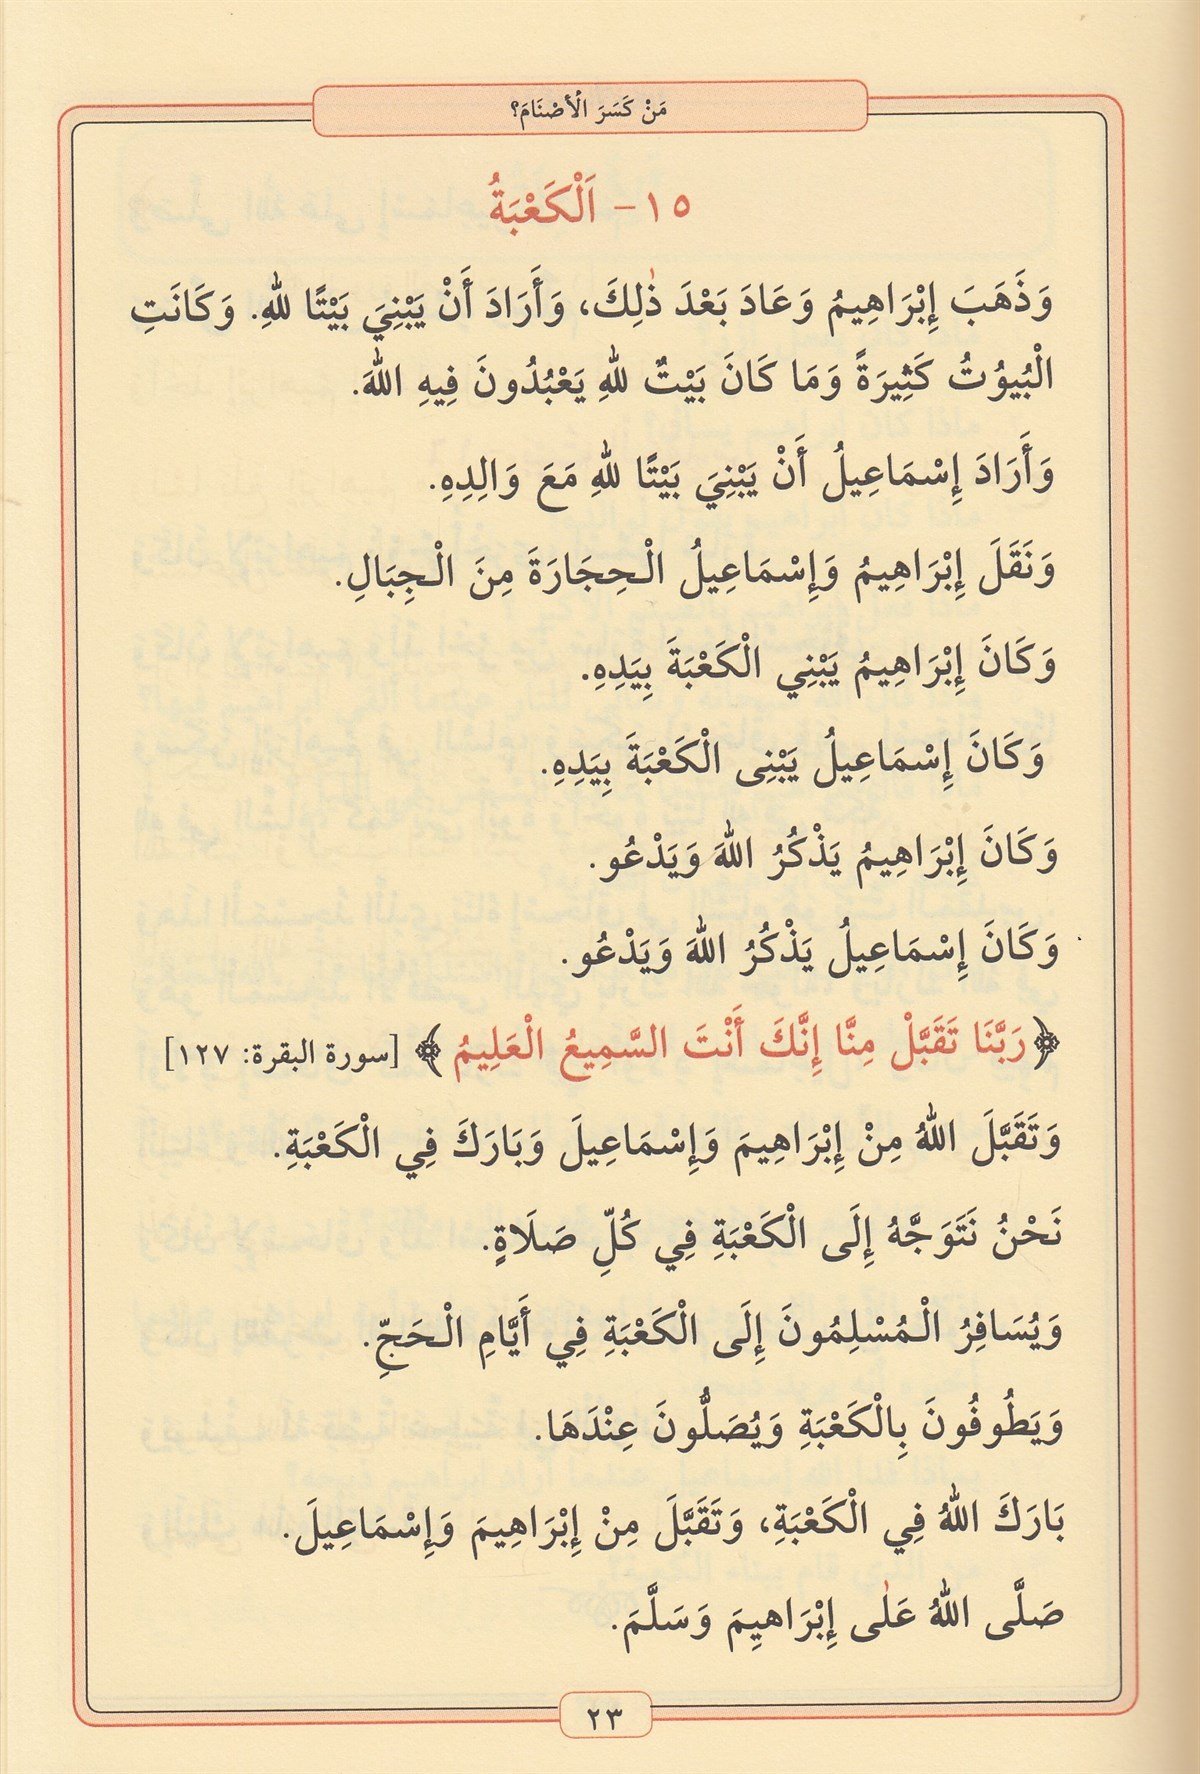 مَنْ كَسَرَ الْأَصْنَامَ؟
١٥- اَلْكَعْبَةُ
وَذَهَبَ إِبْرَاهِيمُ وَعَادَ بَعْدَ ذٰلِكَ، وَأَرَادَ أَنْ يَبْنِيَ بَيْتًا لِلّٰهِ. وَكَانَتِ
الْبُيُوتُ كَثِيرَةً وَمَا كَانَ بَيْتٌ لِلّٰهِ يَعْبُدُونَ فِيهِ اللّٰهَ.
وَأَرَادَ إِسْمَاعِيلُ أَنْ يَبْنِيَ بَيْتًا لِلّٰهِ مَعَ وَالِدِهِ.
وَنَقَلَ إِبْرَاهِيمُ وَإِسْمَاعِيلُ الْحِجَارَةَ مِنَ الْجِبَالِ.
وَكَانَ إِبْرَاهِيمُ يَبْنِي الْكَعْبَةَ بِيَدِهِ.
وَكَانَ إِسْمَاعِيلُ يَبْنِى الْكَعْبَةَ بِيَدِهِ.
وَكَانَ إِبْرَاهِيمُ يَذْكُرُ اللّٰهَ وَيَدْعُو.
وَكَانَ إِسْمَاعِيلُ يَذْكُرُ اللّٰهَ وَيَدْعُو.
﴿رَبَّنَا تَقَبَّلْ مِنَّا إِنَّكَ أَنْتَ السَّمِيعُ الْعَلِيمُ﴾ [سورة البقرة: ١٢٧]
وَتَقَبَّلَ اللّٰهُ مِنْ إِبْرَاهِيمَ وَإِسْمَاعِيلَ وَبَارَكَ فِي الْكَعْبَةِ.
نَحْنُ نَتَوَجَّهُ إِلَى الْكَعْبَةِ فِي كُلِّ صَلَاةٍ.
وَيُسَافِرُ الْمُسْلِمُونَ إِلَى الْكَعْبَةِ فِي أَيَّامِ الْحَجِّ.
وَيَطُوفُونَ بِالْكَعْبَةِ وَيُصَلُّونَ عِنْدَهَا.
بَارَكَ اللّٰهُ فِي الْكَعْبَةِ، وَتَقَبَّلَ مِنْ إِبْرَاهِيمَ وَإِسْمَاعِيلَ.
صَلَّى اللّٰهُ عَلٰى إِبْرَاهِيمَ وَسَلَّمَ.
٢٣